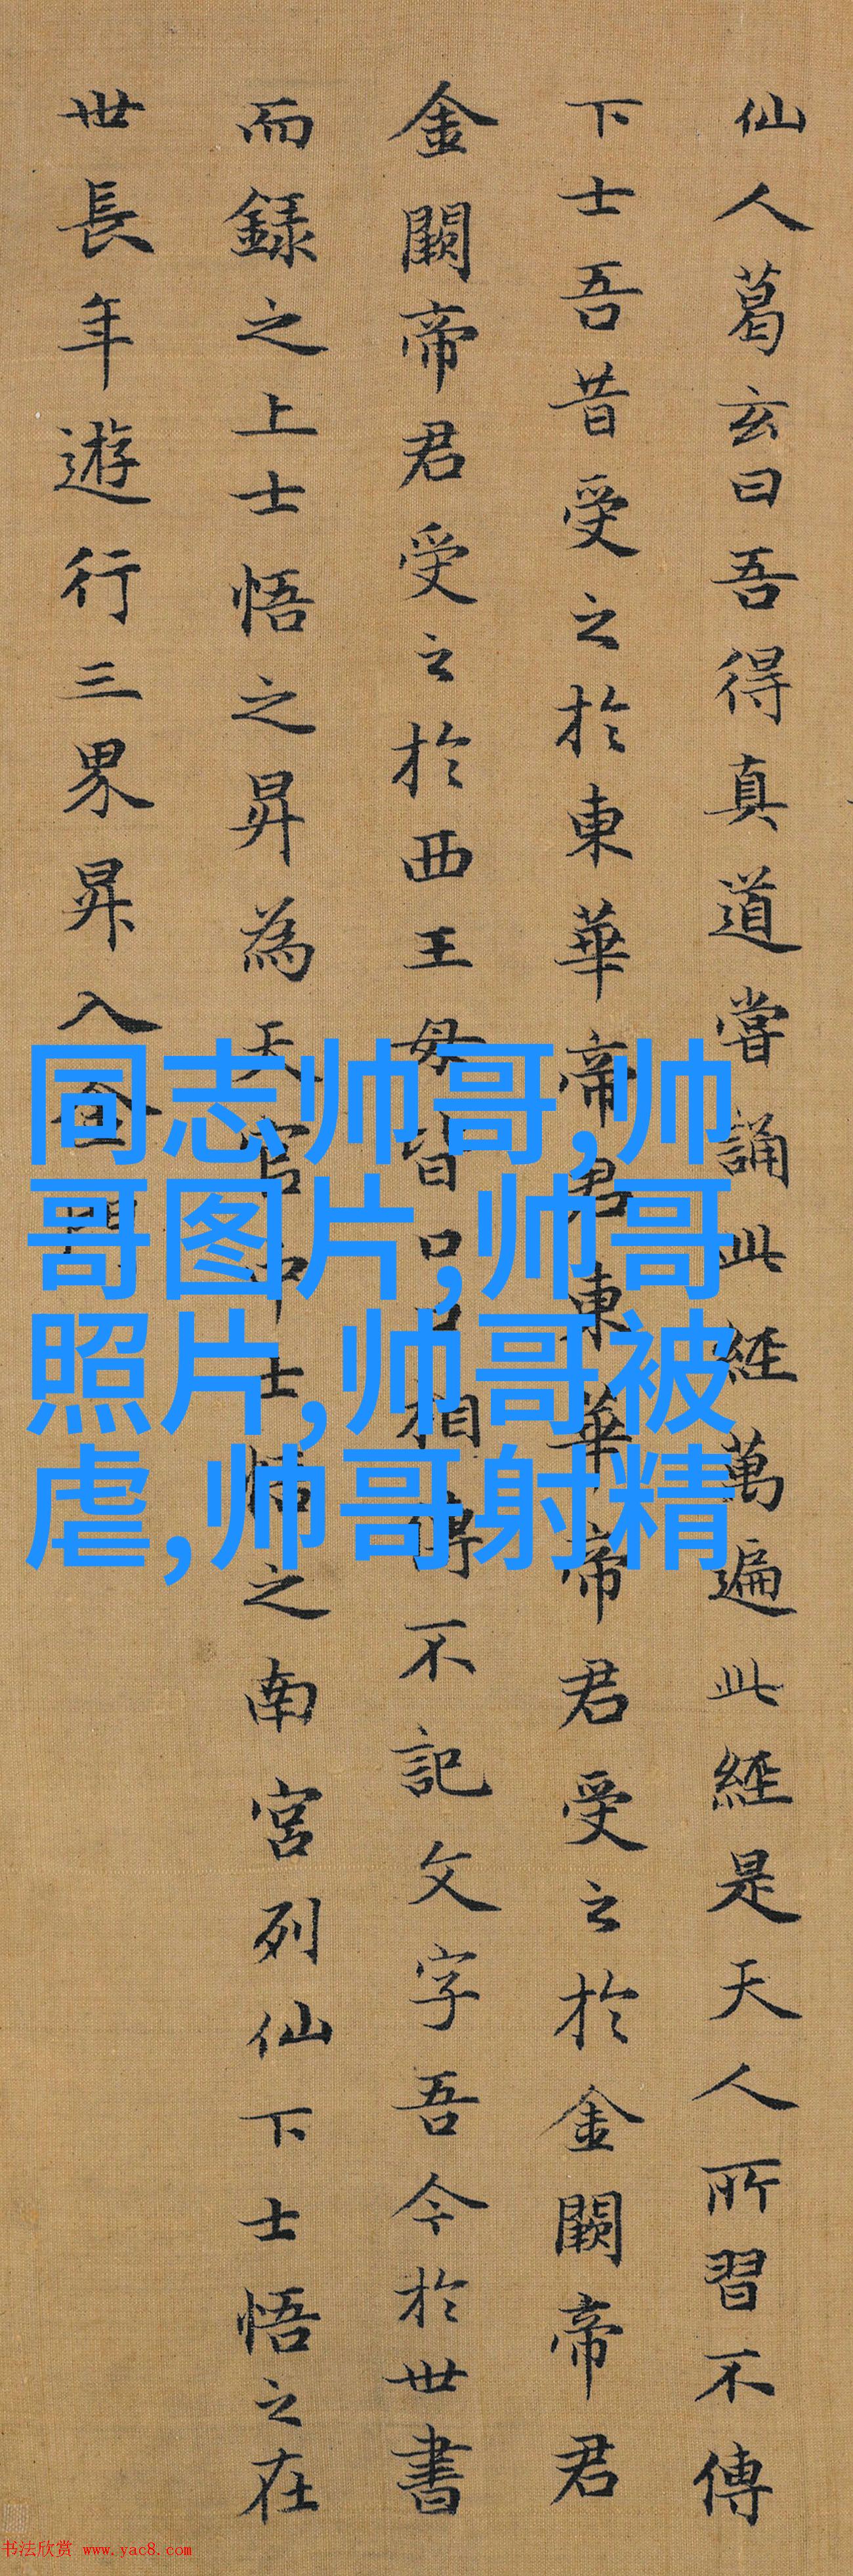 仙人葛玄曰吾得真道嘗誦此經萬遍此經是天人所習不傳
下士吾昔受之於東華帝君東華帝君受之於金闕帝君
金闕帝君受之於西王母皆口口相傳不記文字吾今於世書
而録之上士悟之昇為天官中士悟之南宮列仙下士悟之在
世長年遊行三界昇入金門
同志帅哥,帅
哥图片,帅哥
照片,帅哥被
虐,帅哥射精
书法欣赏 www.yac8.com